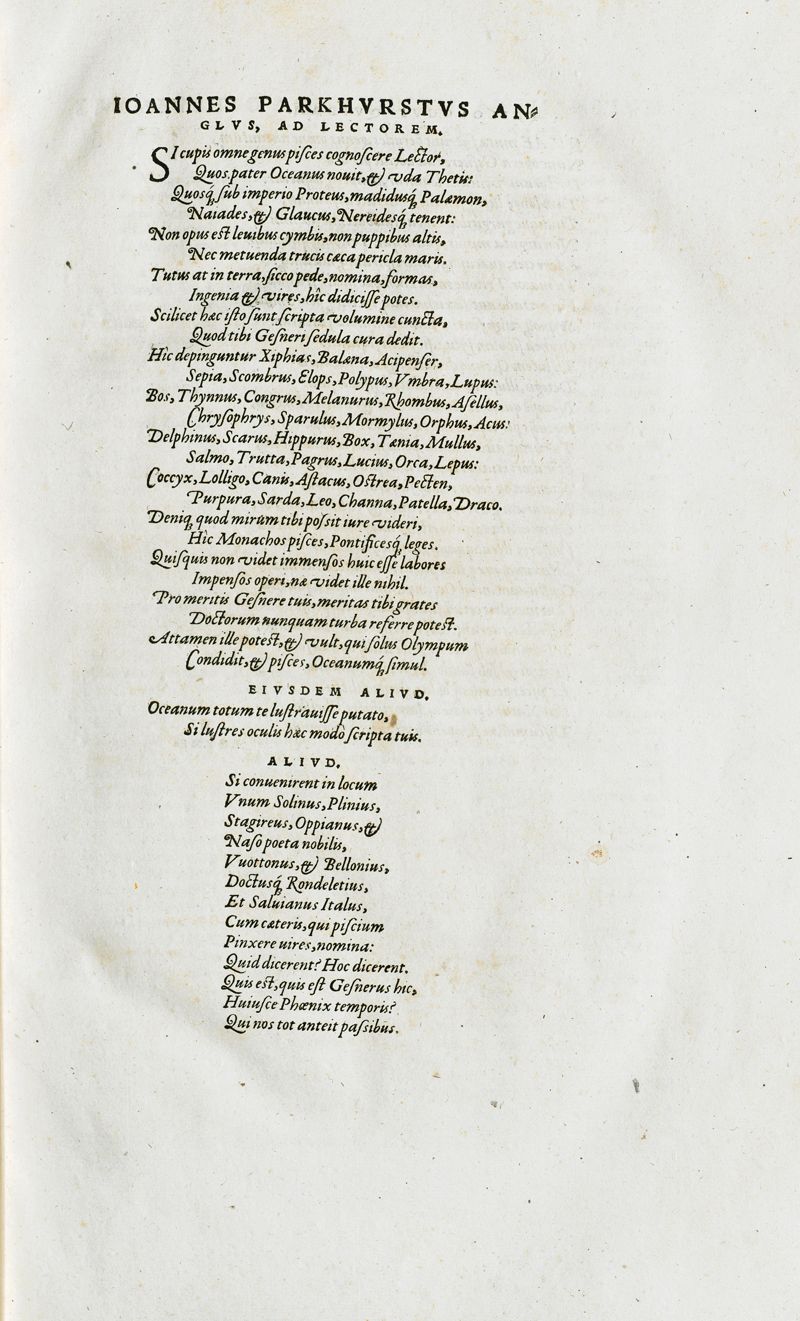 IOANNES PARKHVRSTVS AN⸗
GLVS, AD LECTOREM.
SI cupis omne genus piſces cognoſcere Lector,
Quos pater Oceanus nouit, & vda Thetis:
Quosq́; ſub imperio Proteus, madidusq́; Palæmon,
Naiades, & Glaucus, Nereidesq́; tenent:
Non opus eſt leuibus cymbis, non puppibus altis,
Nec metuenda trucis cæca pericla maris.
Tutus at in terra, ſicco pede, nomina, formas,
Ingenia & vires, hîc didiciſſe potes.
Scilicet hæc iſto ſunt ſcripta volumine cuncta,
Quod tibi Geſneri ſedula cura dedit.
Hîc depinguntur Xiphias, Balæna, Acipenſer,
Sepia, Scombrus, Elops, Polypus, Vmbra, Lupus:
Bos, Thynnus, Congrus, Melanurus, Rhombus, Aſellus,
Chryſophrys, Sparulus, Mormylus, Orphus, Acus:
Delphinus, Scarus, Hippurus, Box, Tænia, Mullus,
Salmo, Trutta, Pagrus, Lucius, Orca, Lepus:
Coccyx, Lolligo, Canis, Aſtacus, Oſtrea, Pecten,
Purpura, Sarda, Leo, Channa, Patella, Draco.
Deniq; quod mirum tibi poſsit iure videri,
Hîc Monachos piſces, Pontificesq́; leges.
Quiſquis non videt immenſos huic eſſe labores
Impenſos operi, næ videt ille nihil.
Pro meritis Geſnere tuis, meritas tibi grates
Doctorum nunquam turba referre poteſt.
Attamen ille poteſt, & vult, qui ſolus Olympum
Condidit, & piſces, Oceanumq́; ſimul.
EIVSDEM ALIVD.
Oceanum totum te luſtrauiſſe putato,
Si luſtres oculis hæc modò ſcripta tuis.
ALIVD.
Si conuenirent in locum
Vnum Solinus, Plinius,
Stagireus, Oppianus, &
Naſo poeta nobilis,
Vuottonus, & Bellonius,
Doctusq́; Rondeletius,
Et Saluianus Italus,
Cum cæteris, qui piſcium
Pinxere uires, nomina:
Quid dicerent? Hoc dicerent.
Quis eſt, quis eſt Geſnerus hic,
Huiuſce Phœnix temporis?
Qui nos tot anteit paſsibus.